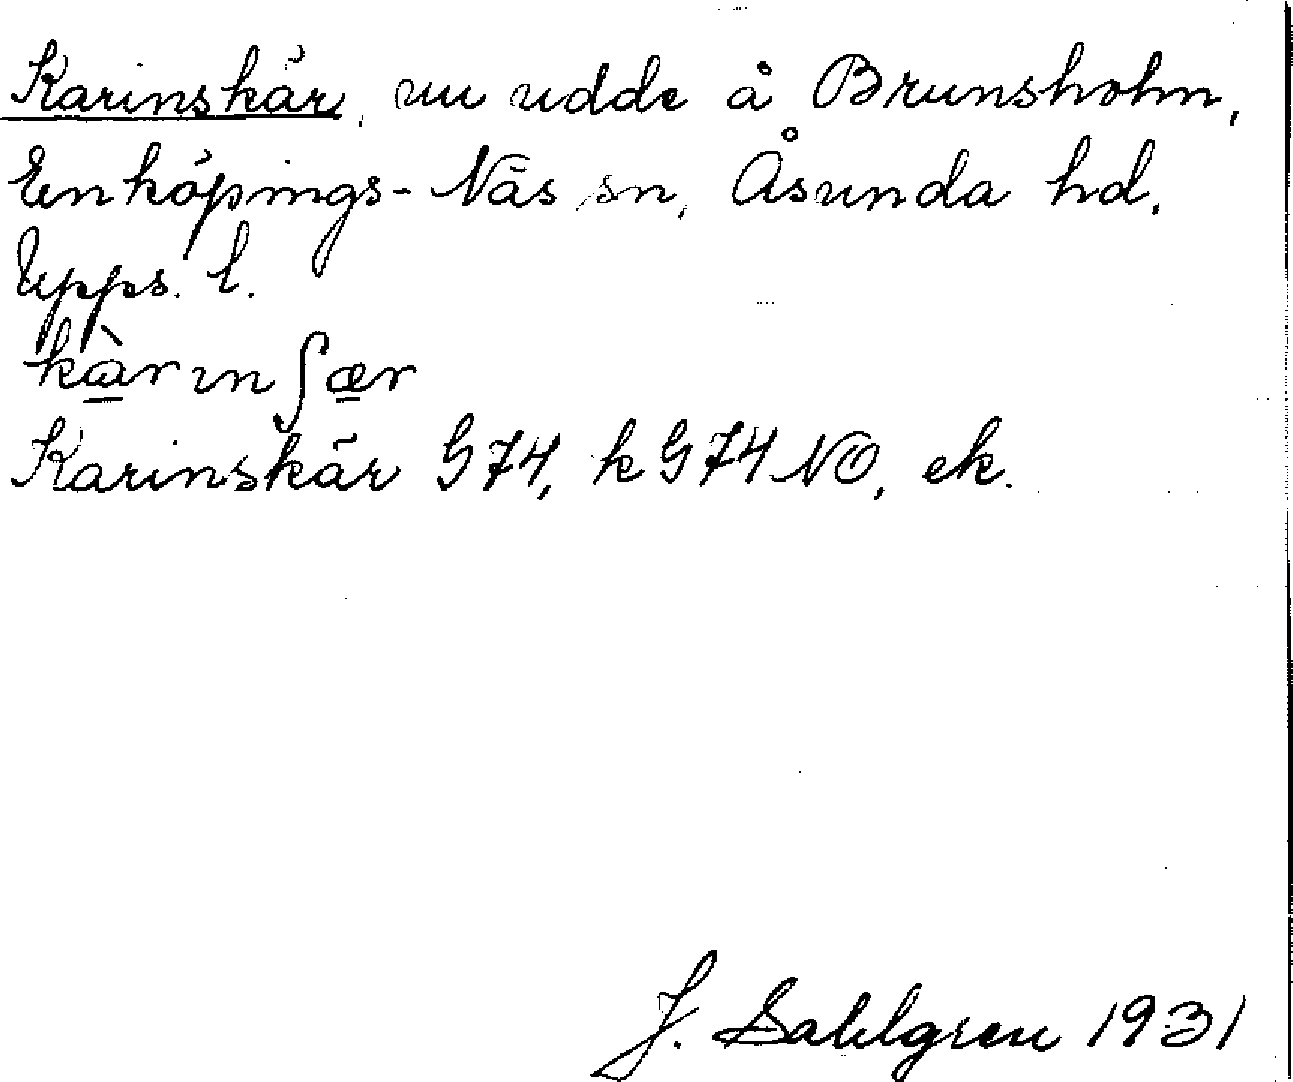 Karinskär, nu udde å Brunsholm,
Enköpings-Näs sn, Åsunda hd.
Upps. l.
kàrinʃær
Karinskär G74, k G74 NO, ek.
J. Sahlgren 1931